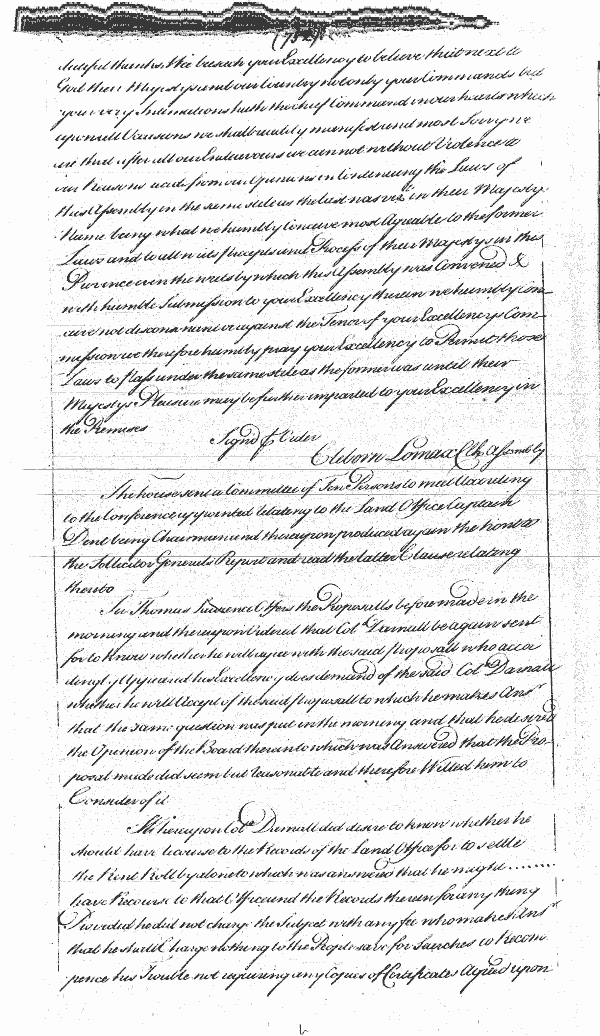 (752)
dutifull thanks. We beseech your Excellency to believe that next to
God their Majestys and our Country not only your Commands but
your very Intimations hath the chief Command in our hearts which
upon all Occasions we shall readily manifest and most Sorry we
are that after all our Endeavours we cannot without Violence to
our Reasons recede from our Opinions in Continuing the Laws of
this Assembly in the same stile as the last was viz.t in their Majestys
Name being what we humbly conceive most Agreeable to the former
Laws and to all writs precepts and Process of their Majestys in this
Province even the writs by which this Assembly was Convened &
with humble Submission to your Excellency therein we humbly con=
ceive not disconsonant or against the Tenor of your Excellencys Com=
mission we therefore humbly pray your Excellency to Permit those
Laws to pass under the same stile as the former was until their
Majestys Pleasure may be further imparted to your Excellency in
the Premises
Signd p Order
Cleborn Lomax Clk Assembly
The house sent a Committee of Ten Persons to meet according
to the Conference appointed relating to the Land Office Captain
Dent being Chairman and thereupon produced again the
the Sollicitor Generals Report and read the latter Clause relating
thereto
Sir Thomas Laurence Offers the Proposalls before made in the
morning and thereupon Ordered that Colo. Darnall be again sent
for to know whether he will agree with the said proposall who acco
dingly Appeared his Excellency does demand of the said Colo. Darnall
whether he will Accept of the said proposall to which he makes Ansr.
that the same question was put in the morning and that he desired
the Opinion of the Board therein to which was Answered that the Pro=
posal made did seem but reasonable and therefore Willed him to
Consider of it
Whereupon Colo. Darnall did desire to know whether he
should have recourse to the Records of the Land Office for to settle
the Rent Roll by alone to which was answered that he might ........
have Recourse to that Office and the Records therein for any thing
Provided he did not charge the Subject with any fee who makes Ansr.
that he shall Charge nothing to the People save for Searches to Recom
pence his Trouble not requiring any Copies of Certificates Agreed upon